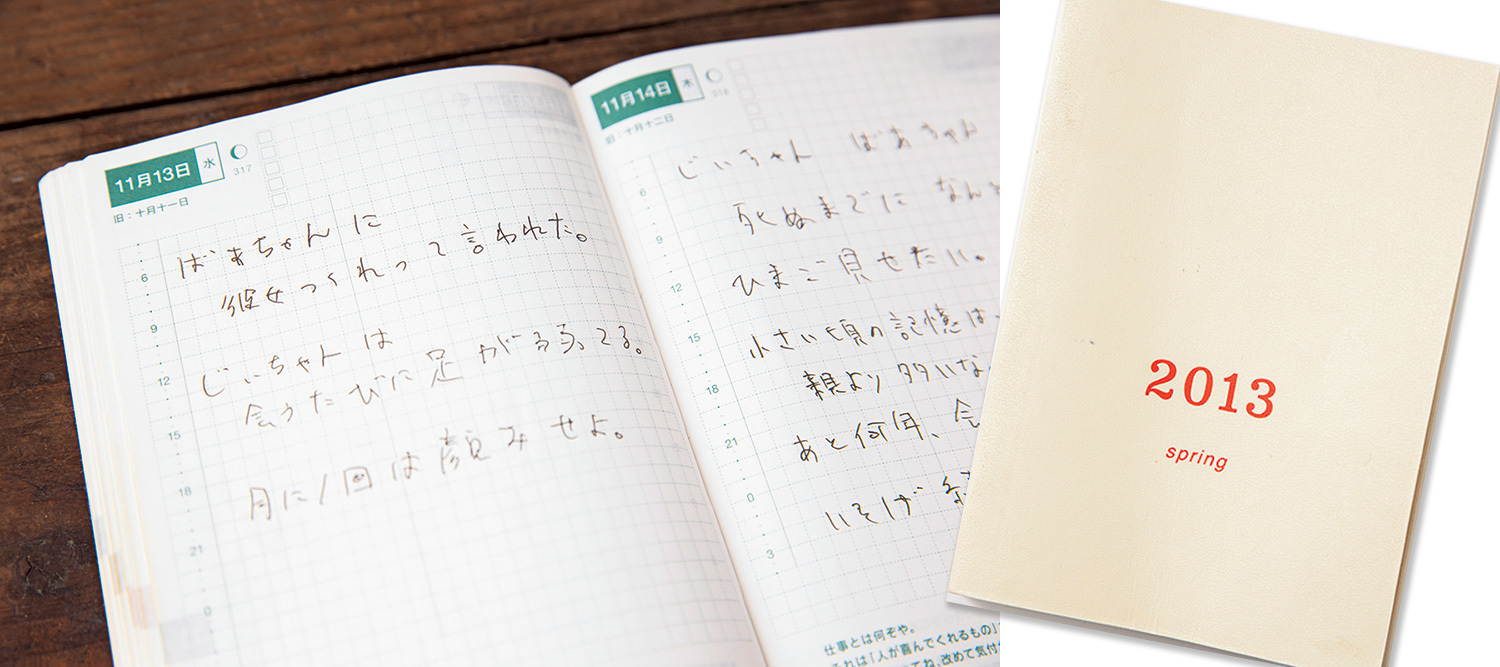 11月13日 水
317
旧：十月十一日
6
9
12
15
18
21
0
ばあちゃんに
彼女つくれって言われた。
じいちゃんは
会うたびに足が弱ってる。
月に1回は顔みせよ。
11月14日 木
318
旧：十月十二日
6
9
12
15
18
21
0
3
じいちゃん ばあちゃん
死ぬまでに なんと
ひまご見せたい。
小さい頃の記憶は
親より多いな
あと何年、会
いそげ 結
仕事とは何ぞや。
それは「人が喜んでくれるもの」
てね、改めて気付
2013
spring